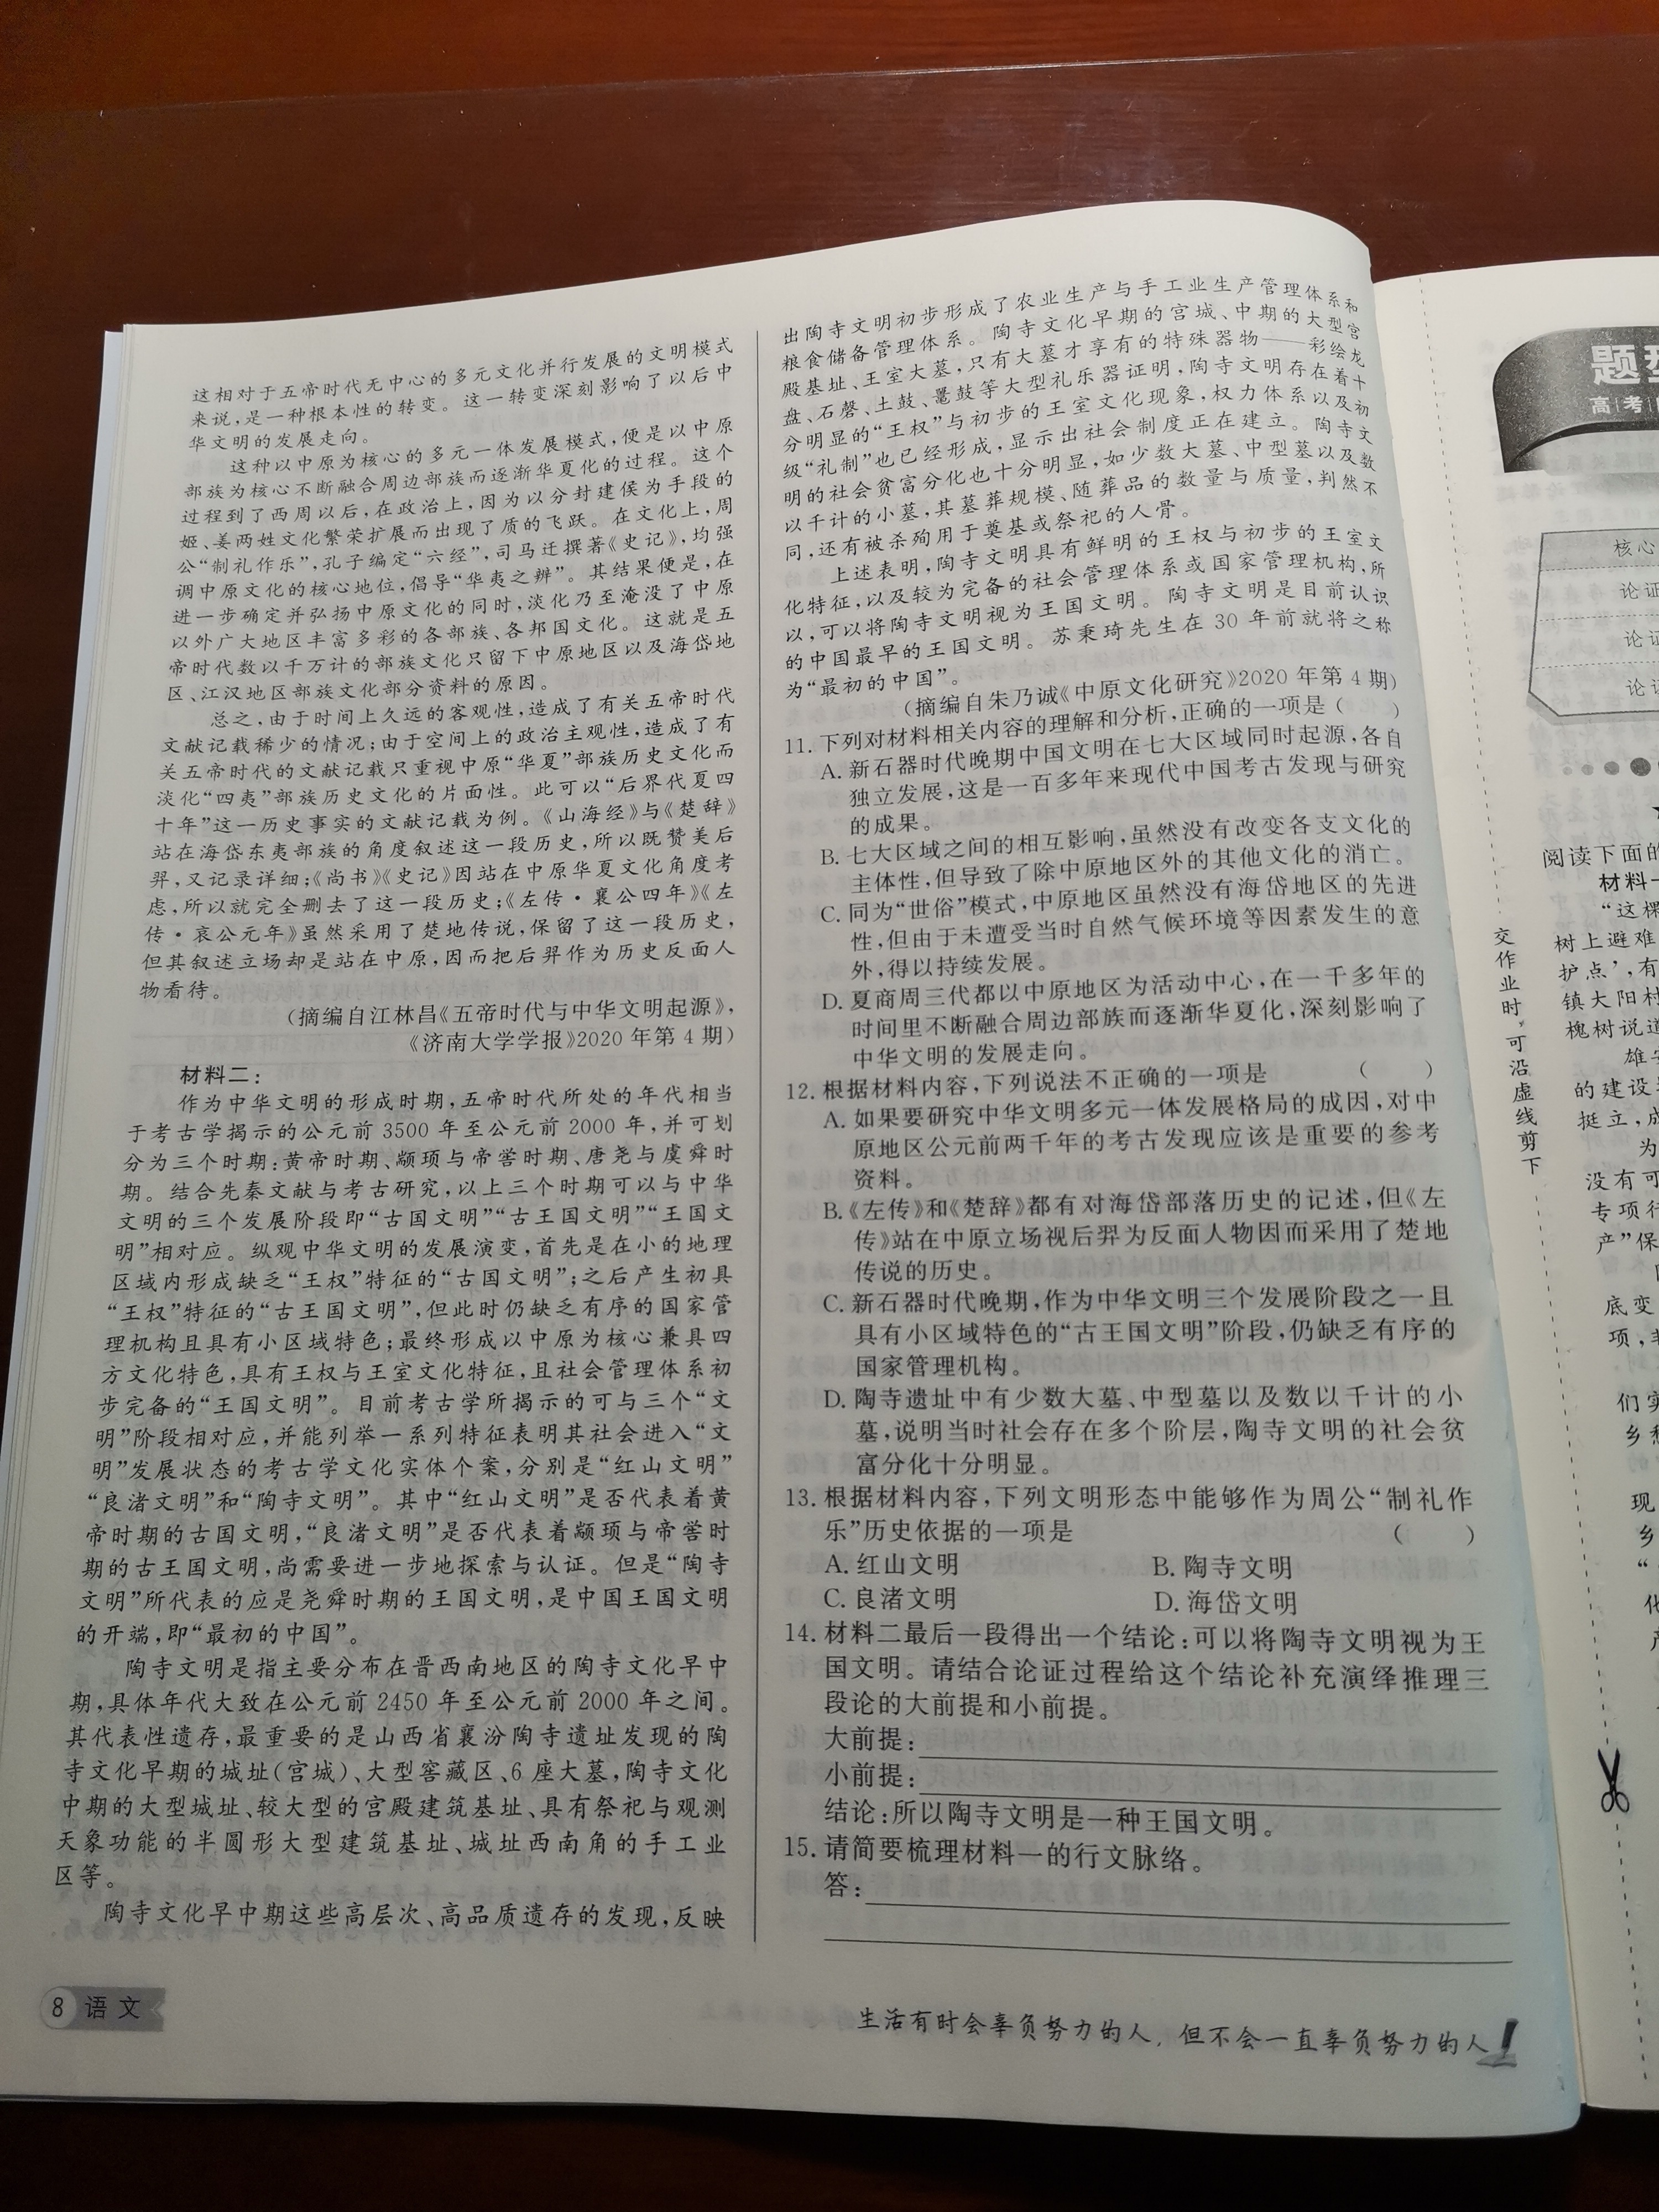 这相对于五帝时代无中心的多元文化并行发展的文明模式
来说，是一种根本性的转变。这一转变深刻影响了以后中
华文明的发展走向。
这种以中原为核心的多元一体发展模式，便是以中原
部族为核心不断融合周边部族而逐渐华夏化的过程。这个
过程到了西周以后，在政治上，因为以分封建侯为手段的
姬、姜两姓文化繁荣扩展而出现了质的飞跃。在文化上，周
公“制礼作乐”，孔子编定“六经”，司马迁撰著《史记》，均强
调中原文化的核心地位，倡导“华夷之辨”。其结果便是，在
进一步确定并弘扬中原文化的同时，淡化乃至淹没了中原
以外广大地区丰富多彩的各部族、各邦国文化。这就是五
帝时代数以千万计的部族文化只留下中原地区以及海岱地
区、江汉地区部族文化部分资料的原因。
总之，由于时间上久远的客观性，造成了有关五帝时代
文献记载稀少的情况；由于空间上的政治主观性，造成了有
关五帝时代的文献记载只重视中原“华夏”部族历史文化而
淡化“四夷”部族历史文化的片面性。此可以“后羿代夏四
十年”这一历史事实的文献记载为例。《山海经》与《楚辞》
站在海岱东夷部族的角度叙述这一段历史，所以既赞美后
羿，又记录详细；《尚书》《史记》因站在中原华夏文化角度考
虑，所以就完全删去了这一段历史；《左传·襄公四年》《左
传·哀公元年》虽然采用了楚地传说，保留了这一段历史，
但其叙述立场却是站在中原，因而把后羿作为历史反面人
物看待。
（摘编自江林昌《五帝时代与中华文明起源》，
《济南大学学报》2020年第4期）
材料二：
作为中华文明的形成时期，五帝时代所处的年代相当
于考古学揭示的公元前3500年至公元前2000年，并可划
分为三个时期：黄帝时期、颛顼与帝喾时期、唐尧与虞舜时
期。结合先秦文献与考古研究，以上三个时期可以与中华
文明的三个发展阶段即“古国文明”“古王国文明”“王国文
明”相对应。纵观中华文明的发展演变，首先是在小的地理
区域内形成缺乏“王权”特征的“古国文明”；之后产生初具
“王权”特征的“古王国文明”，但此时仍缺乏有序的国家管
理机构且具有小区域特色；最终形成以中原为核心兼具四
方文化特色，具有王权与王室文化特征，且社会管理体系初
步完备的“王国文明”。目前考古学所揭示的可与三个“文
明”阶段相对应，并能列举一系列特征表明其社会进入“文
明”发展状态的考古学文化实体个案，分别是“红山文明”
“良渚文明”和“陶寺文明”。其中“红山文明”是否代表着黄
帝时期的古国文明，“良渚文明”是否代表着颛顼与帝喾时
期的古王国文明，尚需要进一步地探索与认证。但是“陶寺
文明”所代表的应是尧舜时期的王国文明，是中国王国文明
的开端，即“最初的中国”。
陶寺文明是指主要分布在晋西南地区的陶寺文化早中
期，具体年代大致在公元前2450年至公元前2000年之间。
其代表性遗存，最重要的是山西省襄汾陶寺遗址发现的陶
寺文化早期的城址（宫城）、大型窖藏区、6座大墓，陶寺文化
中期的大型城址、较大型的宫殿建筑基址、具有祭祀与观测
天象功能的半圆形大型建筑基址、城址西南角的手工业
区等。
陶寺文化早中期这些高层次、高品质遗存的发现，反映
8 语文
出陶寺文明初步形成了农业生产与手工业生产管理体系和
粮食储备管理体系。陶寺文化早期的宫城、中期的大型宫
殿基址、王室大墓，只有大墓才享有的特殊器物——彩绘龙
盘、石磬、土鼓、鼍鼓等大型礼乐器证明，陶寺文明存在着十
分明显的“王权”与初步的王室文化现象，权力体系以及初
级“礼制”也已经形成，显示出社会制度正在建立。陶寺文
明的社会贫富分化也十分明显，如少数大墓、中型墓以及数
以千计的小墓，其墓葬规模、随葬品的数量与质量，判然不
同，还有被杀殉用于奠基或祭祀的人骨。
上述表明，陶寺文明具有鲜明的王权与初步的王室文
化特征，以及较为完备的社会管理体系或国家管理机构，所
以，可以将陶寺文明视为王国文明。陶寺文明是目前认识
的中国最早的王国文明。苏秉琦先生在30年前就将之称
为“最初的中国”。
（摘编自朱乃诚《中原文化研究》2020年第4期）
11. 下列对材料相关内容的理解和分析，正确的一项是（ ）
A. 新石器时代晚期中国文明在七大区域同时起源，各自
独立发展，这是一百多年来现代中国考古发现与研究
的成果。
B. 七大区域之间的相互影响，虽然没有改变各支文化的
主体性，但导致了除中原地区外的其他文化的消亡。
C. 同为“世俗”模式，中原地区虽然没有海岱地区的先进
性，但由于未遭受当时自然气候环境等因素发生的意
外，得以持续发展。
D. 夏商周三代都以中原地区为活动中心，在一千多年的
时间里不断融合周边部族而逐渐华夏化，深刻影响了
中华文明的发展走向。
12. 根据材料内容，下列说法不正确的一项是（ ）
A. 如果要研究中华文明多元一体发展格局的成因，对中
原地区公元前两千年的考古发现应该是重要的参考
资料。
B.《左传》和《楚辞》都有对海岱部落历史的记述，但《左
传》站在中原立场视后羿为反面人物因而采用了楚地
传说的历史。
C. 新石器时代晚期，作为中华文明三个发展阶段之一且
具有小区域特色的“古王国文明”阶段，仍缺乏有序的
国家管理机构。
D. 陶寺遗址中有少数大墓、中型墓以及数以千计的小
墓，说明当时社会存在多个阶层，陶寺文明的社会贫
富分化十分明显。
13. 根据材料内容，下列文明形态中能够作为周公“制礼作
乐”历史依据的一项是（ ）
A. 红山文明 B. 陶寺文明
C. 良渚文明 D. 海岱文明
14. 材料二最后一段得出一个结论：可以将陶寺文明视为王
国文明。请结合论证过程给这个结论补充演绎推理三
段论的大前提和小前提。
大前提：
小前提：
结论：所以陶寺文明是一种王国文明。
15. 请简要梳理材料一的行文脉络。
答：
生活有时会辜负努力的人，但不会一直辜负努力的人！
交作业时，可沿虚线剪下
高考
核心
论证
论证
论证
阅读下面的
材料一
“这棵
树上避难
护点’，有
镇大阳村
槐树说道
雄安
的建设
挺立，成
为
没有可
专项行
产”保
底变
项，
们实
乡
现
乡